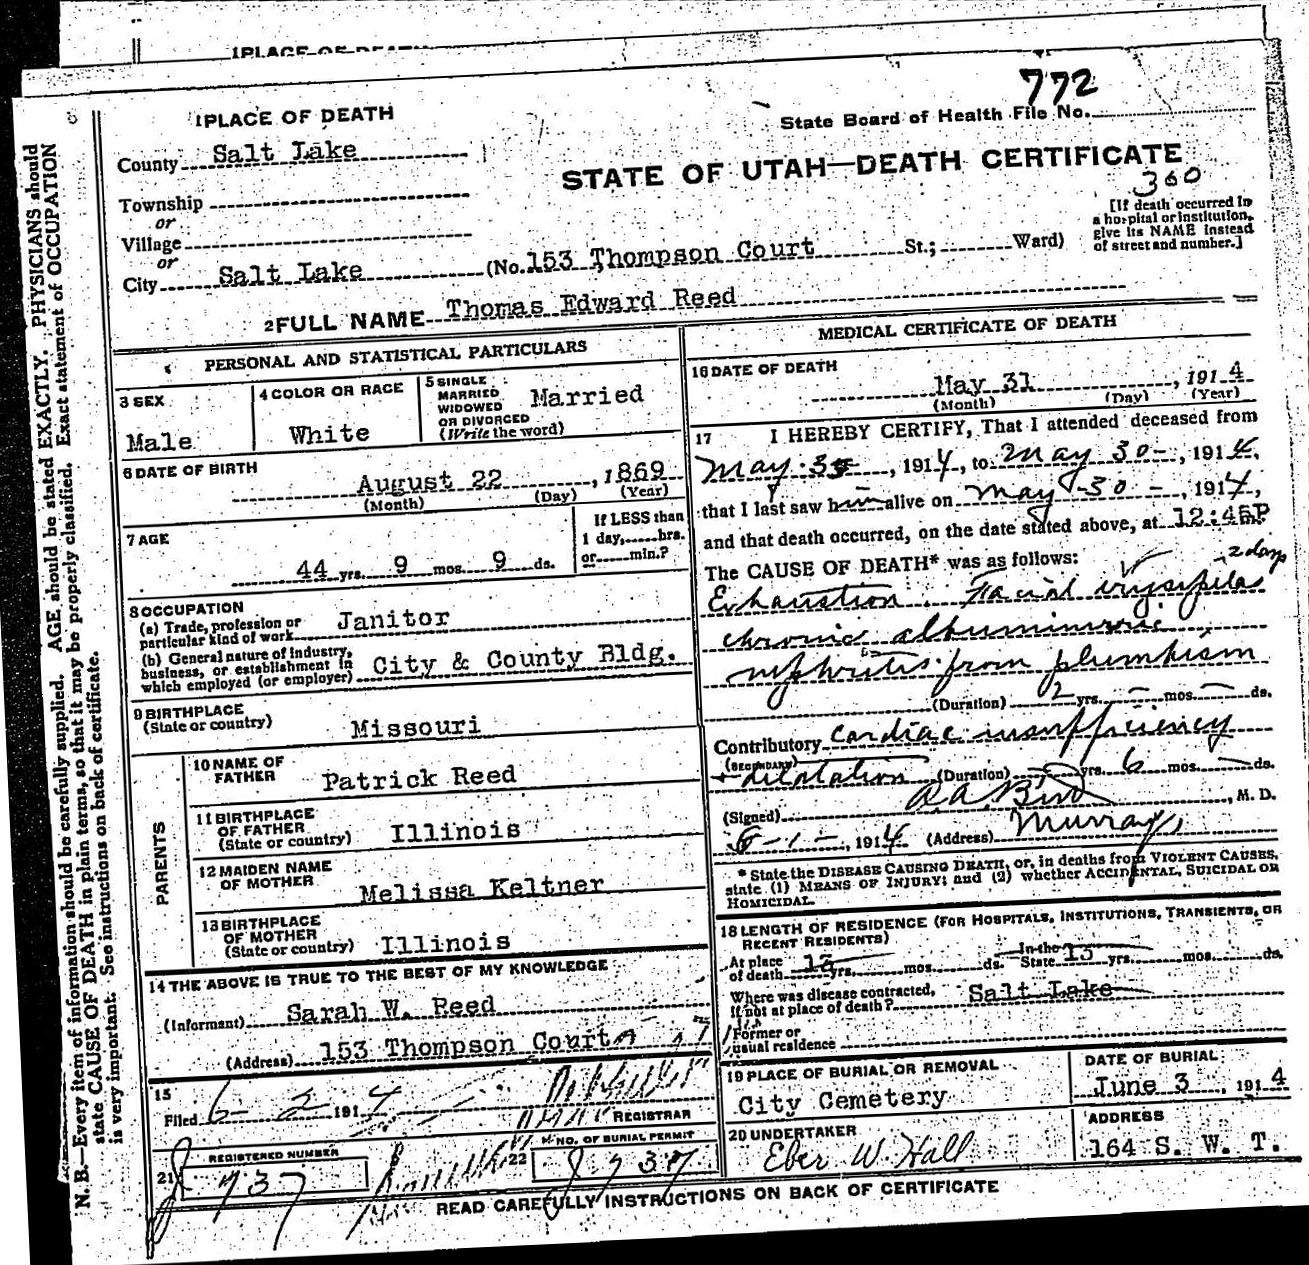 1 PLACE OF DEATH
772
State Board of Health File No.
County Salt Lake
STATE OF UTAH—DEATH CERTIFICATE
360
Township
or
Village
or
City Salt Lake (No. 153 Thompson Court St.; Ward)
[If death occurred in
a hospital or institution,
give its NAME instead
of street and number.]
2 FULL NAME Thomas Edward Reed
PERSONAL AND STATISTICAL PARTICULARS
3 SEX
Male
4 COLOR OR RACE
White
5 SINGLE
MARRIED
WIDOWED
OR DIVORCED
(Write the word)
Married
6 DATE OF BIRTH
August 22, 1869
(Month) (Day) (Year)
7 AGE
44 yrs. 9 mos. 9 ds.
If LESS than
1 day, hrs.
or min.?
8 OCCUPATION
(a) Trade, profession or
particular kind of work Janitor
(b) General nature of industry,
business, or establishment in
which employed (or employer) City & County Bldg.
9 BIRTHPLACE
(State or country)
Missouri
PARENTS
10 NAME OF
FATHER
Patrick Reed
11 BIRTHPLACE
OF FATHER
(State or country) Illinois
12 MAIDEN NAME
OF MOTHER
Melissa Keltner
13 BIRTHPLACE
OF MOTHER
(State or country) Illinois
14 THE ABOVE IS TRUE TO THE BEST OF MY KNOWLEDGE
(Informant) Sarah W. Reed
(Address) 153 Thompson Court
15
Filed 6-2 1914
REGISTRAR
REGISTERED NUMBER
21 J 737
NO. OF BURIAL PERMIT
22 J 737
MEDICAL CERTIFICATE OF DEATH
16 DATE OF DEATH
May 31, 1914
(Month) (Day) (Year)
17 I HEREBY CERTIFY, That I attended deceased from
May, 1914, to May 30-, 1914,
that I last saw him alive on May 30-, 1914,
and that death occurred, on the date stated above, at 12:45P m.
The CAUSE OF DEATH* was as follows: 2 days
Exhaustion. Facial erysipelas
chronic albuminuric
nephritis from plumbism
(Duration) 2 yrs. - mos. - ds.
Contributory cardiac insufficiency
(SECONDARY)
+ dilatation (Duration) - yrs. 6 mos. - ds.
(Signed) A. A. Bird, M. D.
6-1-, 1914 (Address) Murray,
* State the DISEASE CAUSING DEATH, or, in deaths from VIOLENT CAUSES,
state (1) MEANS OF INJURY; and (2) whether ACCIDENTAL, SUICIDAL OR
HOMICIDAL.
18 LENGTH OF RESIDENCE (FOR HOSPITALS, INSTITUTIONS, TRANSIENTS, OR
RECENT RESIDENTS)
At place
of death yrs. mos. ds. In the
State 15 yrs. mos. ds.
Where was disease contracted,
if not at place of death? Salt Lake
Former or
usual residence
19 PLACE OF BURIAL OR REMOVAL
City Cemetery
DATE OF BURIAL
June 3, 1914
20 UNDERTAKER
Eber W. Hall
ADDRESS
164 S. W. T.
READ CAREFULLY INSTRUCTIONS ON BACK OF CERTIFICATE
N. B.—Every item of information should be carefully supplied. AGE should be stated EXACTLY. PHYSICIANS should
state CAUSE OF DEATH in plain terms, so that it may be properly classified. Exact statement of OCCUPATION
is very important. See instructions on back of certificate.
1 PLACE OF DEATH